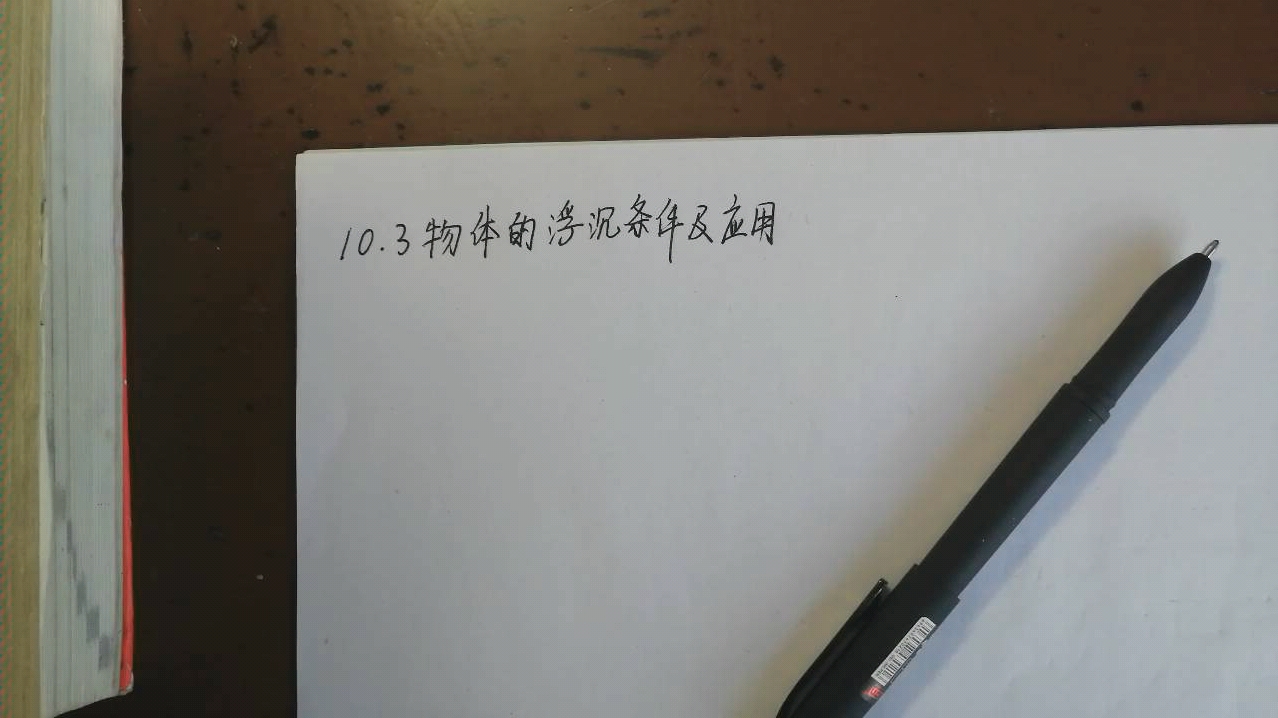 10.3物体的浮沉条件及应用